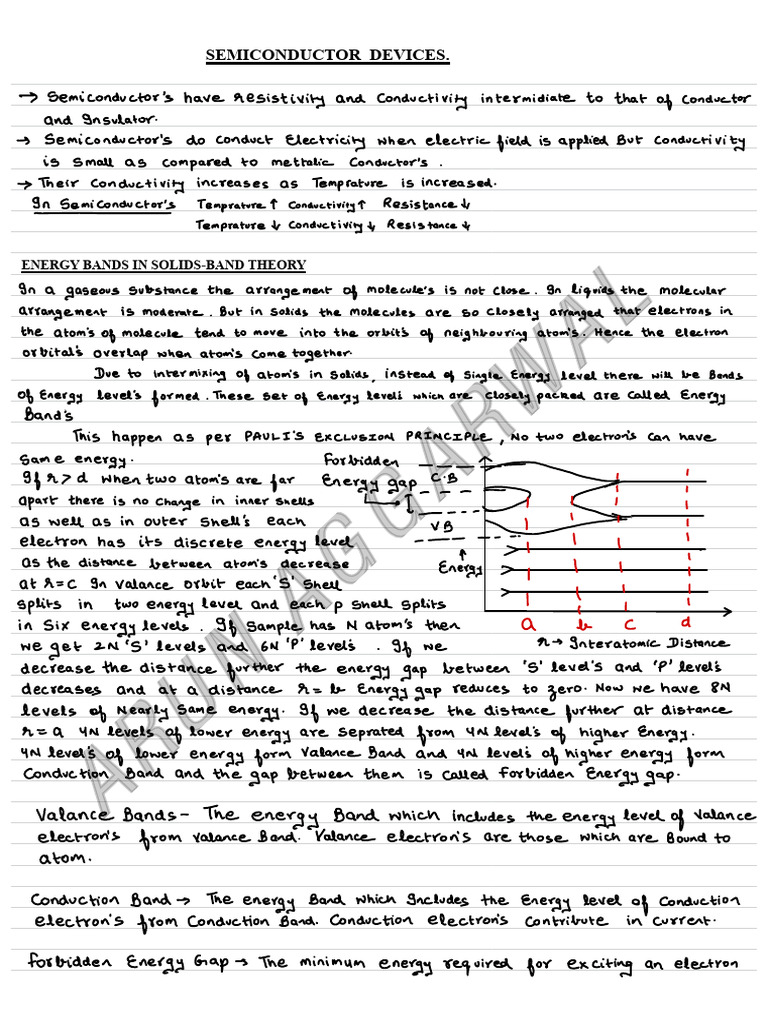 SEMICONDUCTOR DEVICES.
→ Semiconductor's have resistivity and conductivity intermidiate to that of conductor
and Insulator.
→ Semiconductor's do conduct Electricity when electric field is applied But conductivity
is small as compared to mettalic conductor's .
→ Their conductivity increases as Temprature is increased.
In Semiconductor's Temprature ↑ Conductivity ↑ Resistance ↓
Temprature ↓ Conductivity ↓ Resistance ↓
ENERGY BANDS IN SOLIDS-BAND THEORY
In a gaseous substance the arrangement of molecule's is not close. In liquids the molecular
arrangement is moderate. But in solids the molecules are so closely arranged that electrons in
the atom's of molecule tend to move into the orbit's of neighbouring atom's. Hence the electron
orbital's overlap when atom's come together.
Due to intermixing of atom's in solids, instead of single Energy level there will be Bands
of Energy level's formed. These set of Energy levels which are closely packed are called Energy
Band's
This happen as per PAULI'S EXCLUSION PRINCIPLE, No two electron's can have
same energy.
If r > d when two atom's are far
apart there is no change in inner shells
as well as in outer shell's each
electron has its discrete energy level
As the distance between atom's decrease
at r = c In valance orbit each 'S' shell
splits in two energy level and each p shell splits
in Six energy levels . If sample has N atom's then
we get 2N 'S' levels and 6N 'P' level's . If we
decrease the distance further the energy gap between 'S' level's and 'P' level's
decreases and at a distance r = b Energy gap reduces to zero. Now we have 8N
levels of nearly same energy. If we decrease the distance further at distance
r = a 4N levels of lower energy are seprated from 4N level's of higher Energy.
4N level's of lower energy form Valance Band and 4N level's of higher energy form
Conduction Band and the gap between them is called forbidden Energy gap.
Forbidden
Energy gap
C.B
V B
↑
Energy
a b c d
r → Interatomic Distance
Valance Bands - The energy Band which includes the energy level of valance
electron's from valance Band. Valance electron's are those which are Bound to
atom.
Conduction Band → The energy Band which Includes the Energy level of conduction
electron's from Conduction Band. Conduction electron's contribute in current.
Forbidden Energy Gap → The minimum energy required for exciting an electron
ARUN AGGARWAL